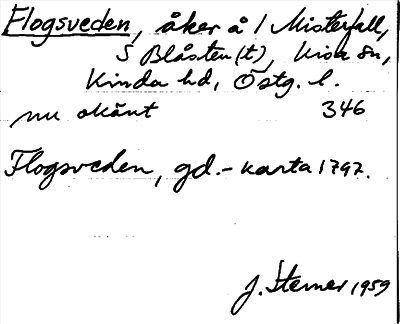 Flogsveden, åker å 1 Misterfall,
S Blåsten (t), Kisa sn,
Kinda hd, Östg. l.
nu okänt 346
Flogsveden, gd.- karta 1797.
J. Sterner 1959